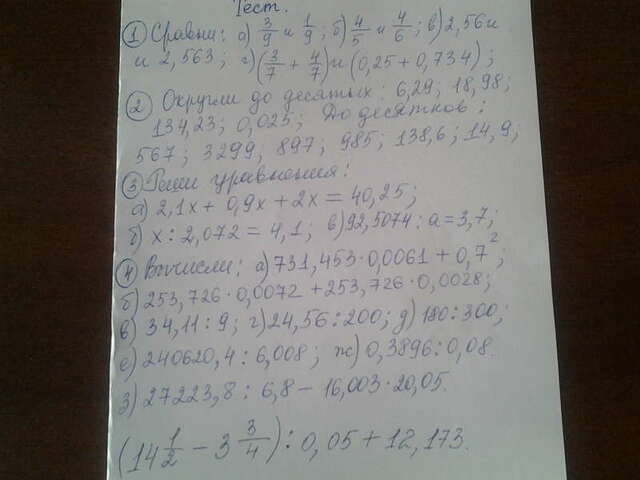 Тест.
① Сравни: а) 3/9 и 1/9; б) 4/5 и 4/6; в) 2,56 и
и 2,563; г) (3/7 + 4/7) и (0,25 + 0,734);
② Округли до десятых: 6,29; 18,98;
134,23; 0,025; До десятков:
567; 3299; 897; 985; 138,6; 14,9;
③ Реши уравнения:
а) 2,1x + 0,9x + 2x = 40,25;
б) x : 2,072 = 4,1; в) 92,5074 : a = 3,7;
④ Вычисли: а) 731,453·0,0061 + 0,7²;
б) 253,726·0,0072 + 253,726·0,0028;
в) 34,11 : 9; г) 24,56 : 200; д) 180 : 300;
е) 240620,4 : 6,008; ж) 0,3896 : 0,08.
з) 27223,8 : 6,8 – 16,003·20,05.
(14 1/2 – 3 3/4) : 0,05 + 12,173.